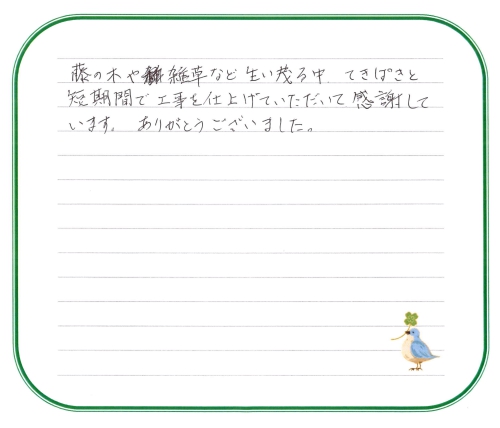 藤の木や雑草など生い茂る中、てきぱきと
短期間で工事を仕上げていただいて感謝して
います。ありがとうございました。